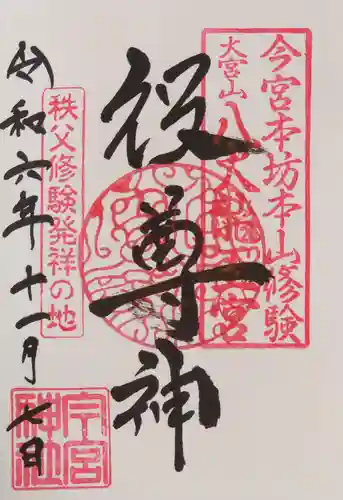 今宮本坊本山修験
大宮山八大龍王宮
役尊神
秩父修験発祥の地
令和六年十一月七日
今宮神社